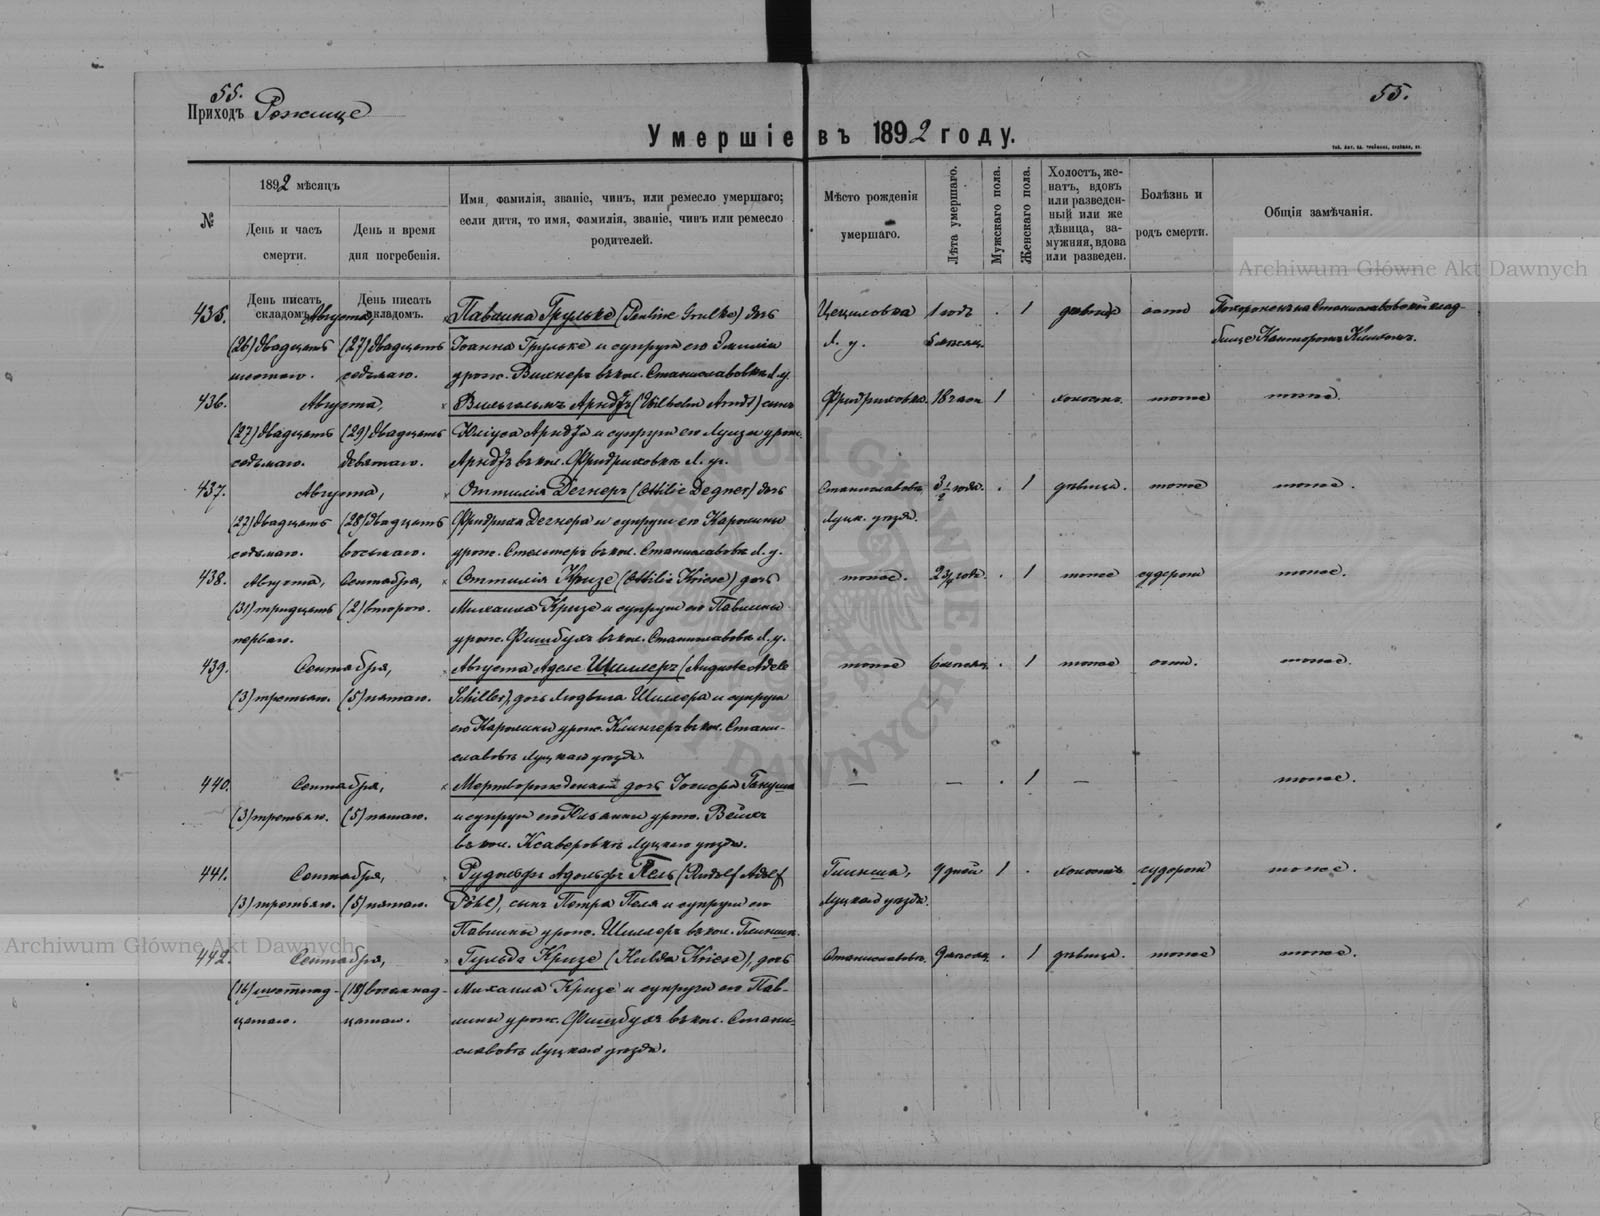 55.
55.
Приходъ Рожище
Умершіе въ 1892 году.
№
1892 мѣсяцъ
День и часъ смерти.
День и время дня погребенія.
Имя, фамилія, званіе, чинъ, или ремесло умершаго;
если дитя, то имя, фамилія, званіе, чинъ или ремесло
родителей.
Мѣсто рожденія
умершаго.
Лѣта умершаго.
Мужскаго пола.
Женскаго пола.
Холостъ, же-
натъ, вдовъ
или разведен-
ный или же
дѣвица, за-
мужняя, вдова
или разведен.
Болѣзнь и
родъ смерти.
Общія замѣчанія.
День писать складомъ.
День писать складомъ.
435. Августа, Павлина Грульке (Pauline Grulke) дочь Цециловка 1 годъ . 1 дѣвица
(26) двадцать (27) двадцать Іоанна Грульке и супруги его Эмиліи Л. у. 6 мѣсяц.
шестаго. седьмаго. урож. Вихнеръ въ кол. Станиславовка Л. у.
Похороненъ на Станиславовской клад-
бище Канторомъ
436. Августа, Вильгельмъ Арндтъ (Wilhelm Arndt) сынъ Фридриховка. 18 1 холостъ. тоже тоже.
(27) двадцать (29) двадцать Юліуса Арндта и супруги его Луизы урож.
седьмаго. девятаго. Арндтъ въ кол. Фридриховка Л. у.
437. Августа, Оттилія Дегнеръ (Ottilie Degner) дочь Станиславовка 3 1/2 года. . 1 дѣвица. тоже тоже.
(27) двадцать (28) двадцать Фридриха Дегнера и супруги его Каролины Луцк. уѣзда.
седьмаго. восьмаго. урож. Стельтеръ въ кол. Станиславовка Л. у.
438. Августа, Сентября, Оттилія Кризе (Ottilie Kriese) дочь тоже. 2 3/4 года. . 1 тоже судороги тоже.
(31) тридцать (2) второго. Михаила Кризе и супруги его Павлины
перваго. урож. Фишбухъ въ кол. Станиславовка Л. у.
439. Сентября, Августа Аделе Шиллеръ (Auguste Adele тоже 6 мѣсяц. . 1 тоже оспы. тоже.
(3) третьяго. (5) пятаго. Schiller), дочь Людвига Шиллера и супруги
его Каролины урож. Клингеръ въ кол. Стани-
славовъ Луцкаго уѣзда.
440. Сентября, Мертворожденная дочь Іосифа Гануша — — . 1 — тоже.
(3) третьяго. (5) пятаго. и супруги его Юліанны урож. Вейхъ
въ кол. Ксаверовка Луцкаго уѣзда.
441. Сентября, Рудольфъ Адольфъ Пель (Rudolf Adolf Глинища, 9 дней 1 . холостъ судороги тоже.
(3) третьяго. (5) пятаго. Pöhl), сынъ Петра Пеля и супруги его Луцкаго уѣзда.
Павлины урож. Шиллеръ въ кол. Глинищ.
442. Сентября, Гульда Кризе (Hulda Kriese), дочь Станиславовъ. 9 мѣсяц. . 1 дѣвица. тоже тоже.
(16) шестнад- (18) восемнад- Михаила Кризе и супруги его Пав-
цатаго. цатаго. лины урож. Фишбухъ въ кол. Стани-
славовъ Луцкаго уѣзда.
Archiwum Główne Akt Dawnych
Archiwum Główne Akt Dawnych